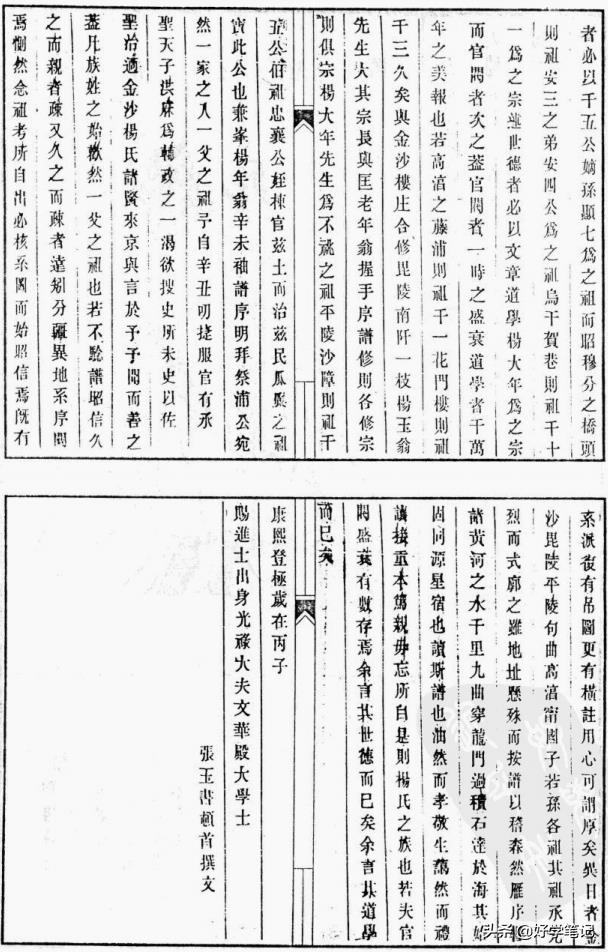 者必以千五公嫡孫顯七爲之祖而昭穆分之橋頭
則祖安三之弟安四公爲之祖烏干賀巷則祖千十
一爲之宗蓮世德者必以文章道學楊大年爲之宗
而官閥者次之葢官閥者一時之盛衰道學者千萬
年之美報也若高湻之藤浦則祖千一花門樓則祖
千三久矣與金沙樓庄合修毘陵南阡一枝楊玉翁
先生大其宗長與匡老年翁握手序譜修則各修宗
則俱宗楊大年先生爲不祧之祖平陵沙障則祖千
五公伯祖忠襄公姪棟官兹土而治兹民瓜瓞之祖
實此公也兼峯楊年翁辛未袖譜序明拜祭浦公宛
然一家之人一父之祖予自辛丑叨捷服官有承
聖天子洪庥爲輔政之一渴欲搜史所未史以佐
聖治適金沙楊氏諸賢來京與言於予予聞而善之
葢凡族姓之始歡然一父之祖也若不驗譜昭信久
之而親者疎又久之而疎者遠矧分疆異地系序間
焉惻然念祖考所自出必核系圖而始昭信焉旣有
系派復有吊圖更有橫註用心可謂厚矣異日者金
沙毘陵平陵句曲高湻甯國子若孫各祖其祖承允
烈而式廓之雖地址懸殊而按譜以稽森然雁序
諸黃河之水千里九曲穿龍門過積石達於海其
固同源星宿也讀斯譜也油然而孝敬生藹然而禮
讓接重本篤親毋忘所自是則楊氏之族也若夫官
閥盛衰有數存焉余言其世德而已矣余言其道學
而已矣
康熙登極歲在丙子
賜進士出身光祿大夫文華殿大學士
張玉書頓首撰文
头条 @好学笔记